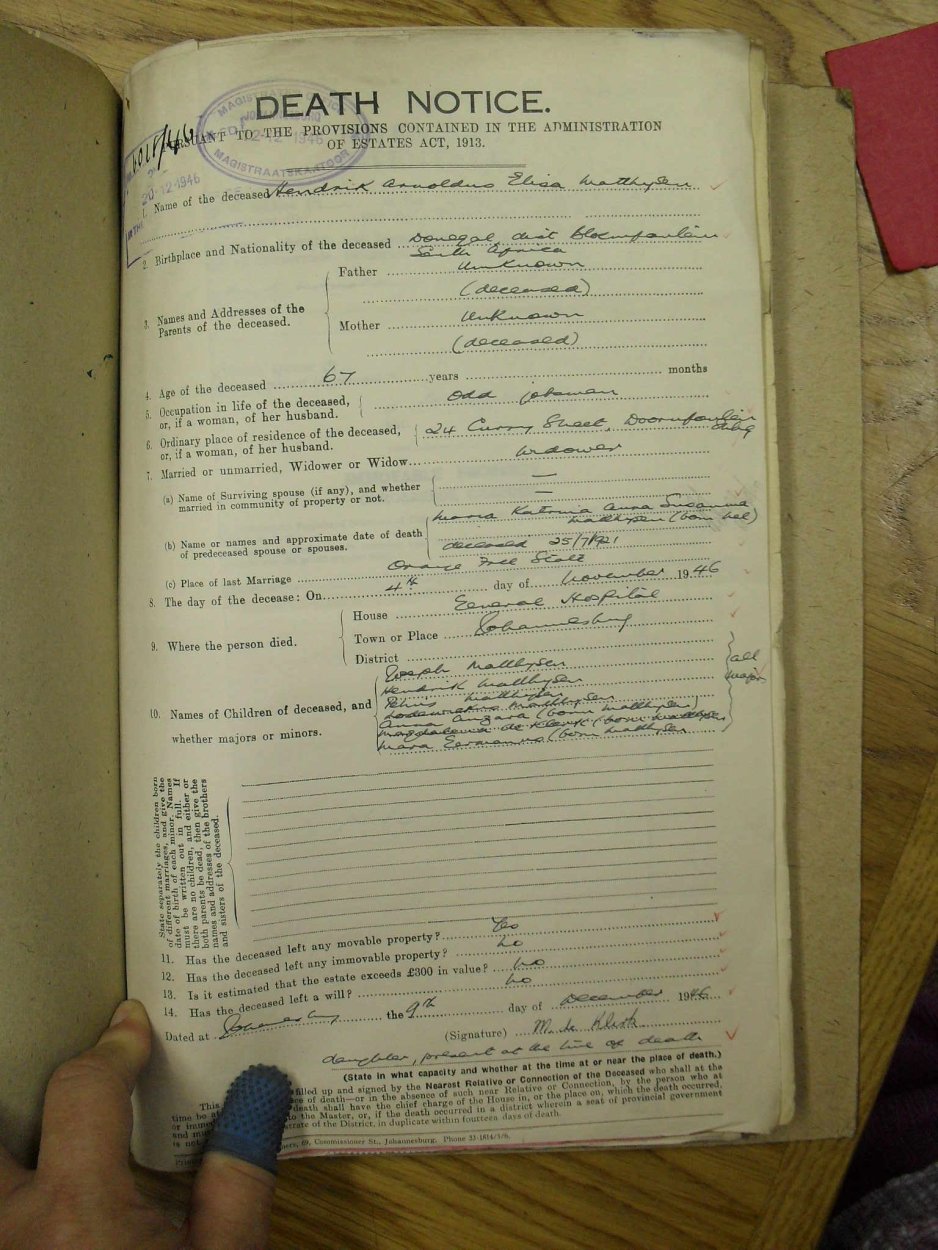 DEATH NOTICE.
PURSUANT TO THE PROVISIONS CONTAINED IN THE ADMINISTRATION
OF ESTATES ACT, 1913.
MAGISTRAATSKANTOOR
12-12-1946
6018/46
20-12-1946
1. Name of the deceased Hendrik Arnoldus Elisa Matthysen
2. Birthplace and Nationality of the deceased Donegal, dist Bloemfontein
South Africa
3. Names and Addresses of the Parents of the deceased.
Father Unknown
(deceased)
Mother Unknown
(deceased)
4. Age of the deceased 67 years months
5. Occupation in life of the deceased, or, if a woman, of her husband. Odd jobsman
6. Ordinary place of residence of the deceased, or, if a woman, of her husband. 24 Curry Street, Doornfontein
Jhbg
7. Married or unmarried, Widower or Widow Widower
(a) Name of Surviving spouse (if any), and whether married in community of property or not. —
—
(b) Name or names and approximate date of death of predeceased spouse or spouses. Maria Katrina Anna Susanna
Matthysen (born Nel)
deceased 25/7/1921
(c) Place of last Marriage Orange Free State
8. The day of the decease: On 4th day of November 1946
9. Where the person died.
House General Hospital
Town or Place Johannesburg
District
10. Names of Children of deceased, and whether majors or minors.
Joseph Matthysen
Hendrik Matthysen
Matthysen
Lodewickus Matthysen
Anna (born Matthysen)
Magdalena de Klerk (born Matthysen
Maria (born Matthysen
all major
State separately the children born
of different marriages, and give the
date of birth of each minor. Names
must be written out in full. If
there are no children, and either or
both parents be dead, then give the
names and addresses of the brothers
and sisters of the deceased.
11. Has the deceased left any movable property? Yes
12. Has the deceased left any immovable property? No
13. Is it estimated that the estate exceeds £300 in value? No
14. Has the deceased left a will? No
Dated at Johannesburg the 9th day of December 1946
(Signature) M de Klerk
daughter, present at the time of death
(State in what capacity and whether at the time at or near the place of death.)
This filled up and signed by the Nearest Relative or Connection of the Deceased who shall at the
time be at ce of death—or in the absence of such near Relative or Connection, by the person who at
or immed death shall have the chief charge of the House in, or the place on, which the death occurred,
and mus to the Master, or, if the death occurred in a district wherein a seat of provincial government
is not strate of the District, in duplicate within fourteen days of death.
69, Commissioner St., Johannesburg. Phone 33-1814/5/6.